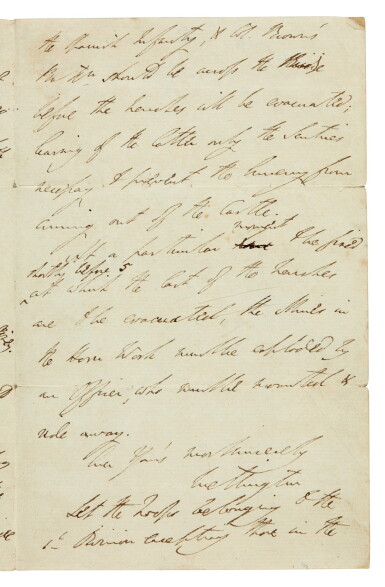 the Spanish Infantry, & Col. Brown's
should be across the Bridge
before the trenches will be evacuated;
leaving of the latter only the Sentries
necessary to prevent the Enemy from
coming out of the Castle.
At a particular moment to be fixed
not before 5
at which the last of the trenches
are to be evacuated, the Mines in
the Horn Work must be exploded by
an Officer, who must be mounted &
ride away.
Ever Yours most sincerely
Wellington
Let the troops belonging to the
1st Division excepting those in the